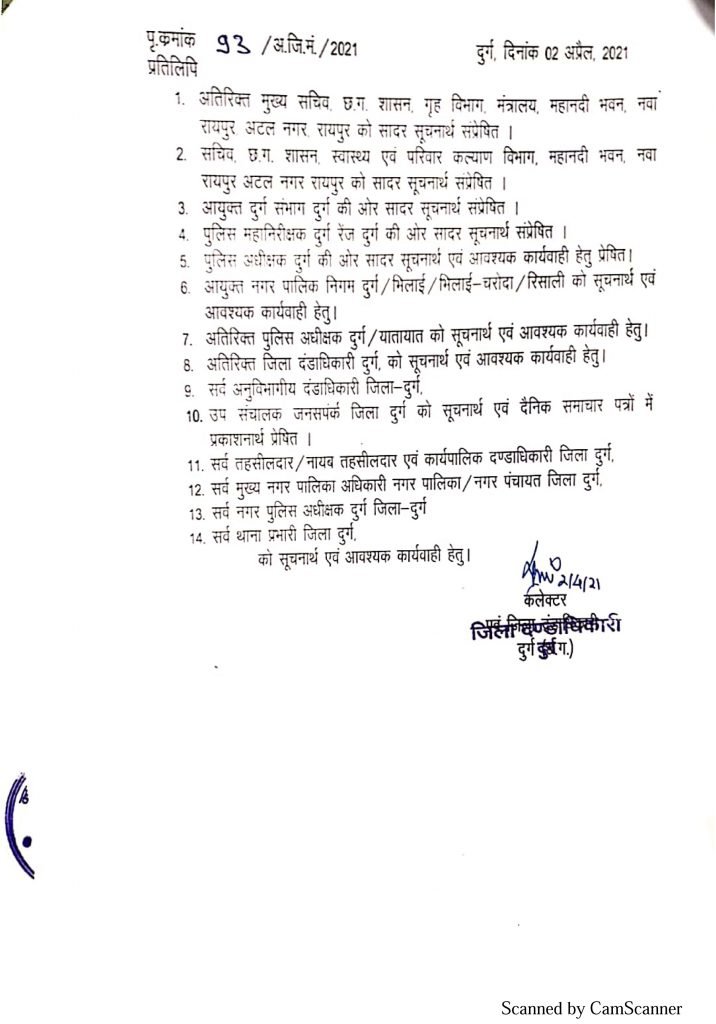 पृ.क्रमांक 93 /अ.जि.मं./2021 दुर्ग, दिनांक 02 अप्रैल, 2021
प्रतिलिपि
1. अतिरिक्त मुख्य सचिव, छ.ग. शासन, गृह विभाग, मंत्रालय, महानदी भवन, नवा
रायपुर अटल नगर, रायपुर को सादर सूचनार्थ संप्रेषित ।
2. सचिव, छ.ग. शासन, स्वास्थ्य एवं परिवार कल्याण विभाग, महानदी भवन, नवा
रायपुर अटल नगर रायपुर को सादर सूचनार्थ संप्रेषित ।
3. आयुक्त दुर्ग संभाग दुर्ग की ओर सादर सूचनार्थ संप्रेषित ।
4. पुलिस महानिरीक्षक दुर्ग रेंज दुर्ग की ओर सादर सूचनार्थ संप्रेषित ।
5. पुलिस अधीक्षक दुर्ग की ओर सादर सूचनार्थ एवं आवश्यक कार्यवाही हेतु प्रेषित।
6. आयुक्त नगर पालिक निगम दुर्ग/भिलाई/भिलाई-चरोदा/रिसाली को सूचनार्थ एवं
आवश्यक कार्यवाही हेतु।
7. अतिरिक्त पुलिस अधीक्षक दुर्ग/यातायात को सूचनार्थ एवं आवश्यक कार्यवाही हेतु।
8. अतिरिक्त जिला दंडाधिकारी दुर्ग, को सूचनार्थ एवं आवश्यक कार्यवाही हेतु।
9. सर्व अनुविभागीय दंडाधिकारी जिला-दुर्ग,
10. उप संचालक जनसपंर्क जिला दुर्ग को सूचनार्थ एवं दैनिक समाचार पत्रों में
प्रकाशनार्थ प्रेषित ।
11. सर्व तहसीलदार/नायब तहसीलदार एवं कार्यपालिक दण्डाधिकारी जिला दुर्ग,
12. सर्व मुख्य नगर पालिका अधिकारी नगर पालिका/नगर पंचायत जिला दुर्ग,
13. सर्व नगर पुलिस अधीक्षक दुर्ग जिला-दुर्ग
14. सर्व थाना प्रभारी जिला दुर्ग,
को सूचनार्थ एवं आवश्यक कार्यवाही हेतु।
2/4/21
कलेक्टर
जिला दण्डाधिकारी
दुर्ग
Scanned by CamScanner